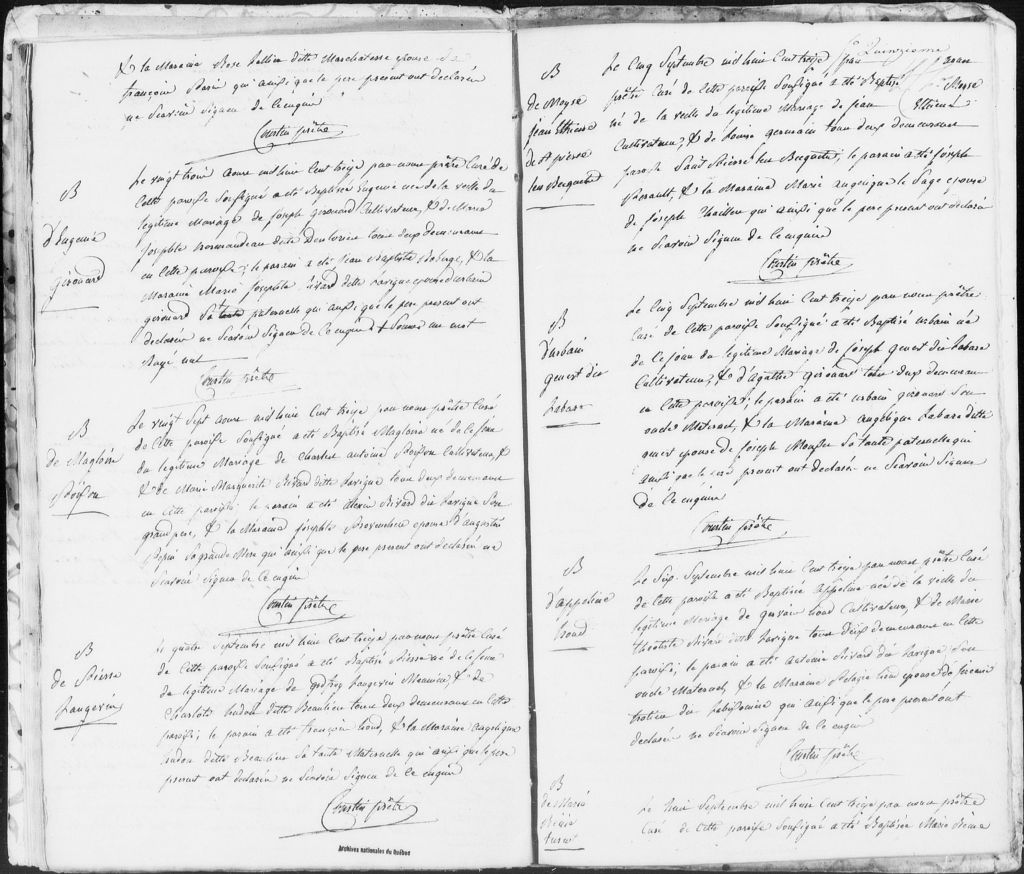 & la Maraine Rose hellie ditte Marchaterre epouse de
françoois Paris qui ainsi que le pere present ont declaré
ne Scavoir Signer de Ce enquis
Courtin prêtre
B
d'Eugenie
girouard
Le vingt trois aoust mil huit Cent treize par nous prêtre Curé de
Cette paroisse Soussigné a été Baptisée Eugenie née de la veille du
legitime Mariage de joseph girouard Cultivateur, & de Marie
josephte normandeau ditte Deslorier tous deux demeurans
en Cette paroisse; le parain a été jean Baptiste & la
Maraine Marie josephte Rivard ditte Lavigne epouse d'urbain
girouard Sa tante paternelle qui ainsi que le pere present ont
declaré ne Scavoir Signer de Ce enquis & Sommé un mot
Rayé nul
Courtin prêtre
B
de Magloire
Poisson
Le vingt Sept aoust mil huit Cent treize par nous prêtre Curé
de Cette paroisse Soussigné a été Baptisé Magloire né de le jour
du legitime Mariage de Charles antoine Poisson Cultivateur, &
& de Marie Marguerite Rivard ditte Lavigne tous deux demeurans
en Cette paroisse: le parain a été alexis Rivard dit Lavigne Son
grand pere, & la Maraine josephte Provencher epouse d'augustin
Pepin Sa grande Mere qui ainsi que le pere present ont declaré ne
Scavoir Signer de Ce enquis
Courtin prêtre
B
de Pierre
Langevin
Le quatre Septembre mil huit Cent treize par nous prêtre Curé
de Cette paroisse Soussigné a été Baptisé Pierre né de le jour
du legitime Mariage de godfroy Langevin Meunier, & de
Charlote hudon ditte Beaulieu tous deux demeurans en Cette
paroisse; le parain a été françois houd, & la Maraine Angelique
hudon ditte Beaulieu Sa tante Maternelle qui ainsi que le pere
present ont declaré ne Scavoir Signer de Ce enquis
Courtin prêtre
Archives nationales du Québec
Quinzieme
B
de Moyse
jean Ethienne
de St pierre
les Becquets
Le Cinq Septembre mil huit Cent treize
prêtre Curé de Cette paroisse Soussigné a été Baptisé Moyse
né de la veille du legitime Mariage de jean Ethienne
Cultivateur, & de Louise germain tous deux demeurans
paroisse Saint Pierre les Becquets; le parain a été joseph
Perault, & la Maraine Marie angelique le Page epouse
de joseph Chaillou qui ainsi que le pere present ont declaré
ne Scavoir Signer de Ce enquis
Courtin prêtre
B
d'urbain
genest dit
Labare
Le Cinq Septembre mil huit Cent treize par nous prêtre
Curé de Cette paroisse Soussigné a été Baptisé urbain né
de le jour du legitime Mariage de joseph genest dit Labare
Cultivateur, & d'Agathe girouard tous deux demeurans
en Cette paroisse; le parain a été urbain girouard Son
oncle Maternel, & la Maraine Angelique Labare ditte
genest epouse de joseph Sa tante paternelle qui
ainsi que le pere present ont declaré ne Scavoir Signer
de Ce enquis
Courtin prêtre
B
d'appoline
houd
Le Six Septembre mil huit Cent treize par nous prêtre Curé
de Cette paroisse Soussigné a été Baptisée Appoline née de la veille du
legitime Mariage de gervais houd Cultivateur, & de Marie
theotiste Rivard ditte Lavigne tous deux demeurans en Cette
paroisse; le parain a été Antoine Rivard dit Lavigne Son
oncle Maternel, & la Maraine houd epouse de
trotier dit Labissonniere qui ainsi que le pere present ont
declaré ne Scavoir Signer de Ce enquis
Courtin prêtre
B
de Marie
Le huit Septembre mil huit Cent treize par nous prêtre
Curé de Cette paroisse Soussigné a été Baptisée Marie